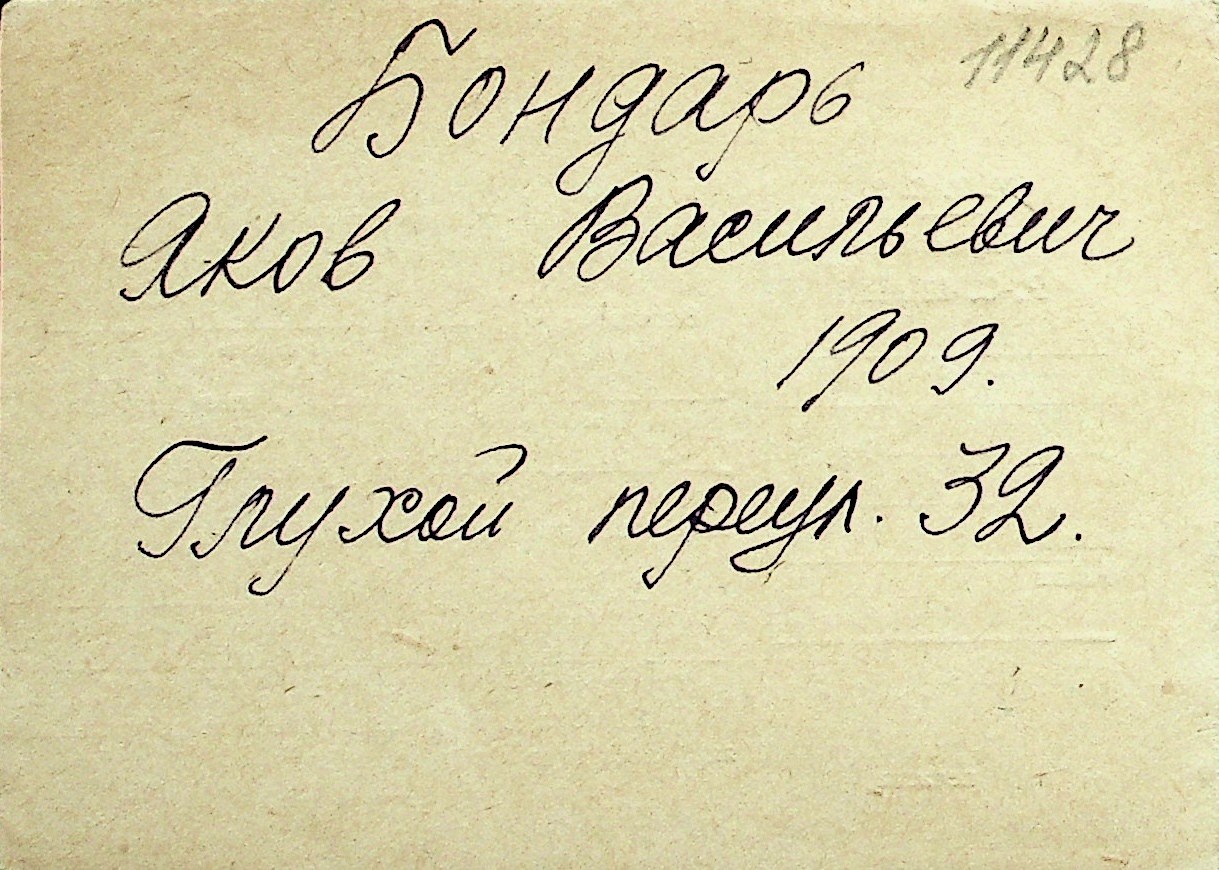 Бондарь 11428
Яков Васильевич
1909.
Глухой переул. 32.